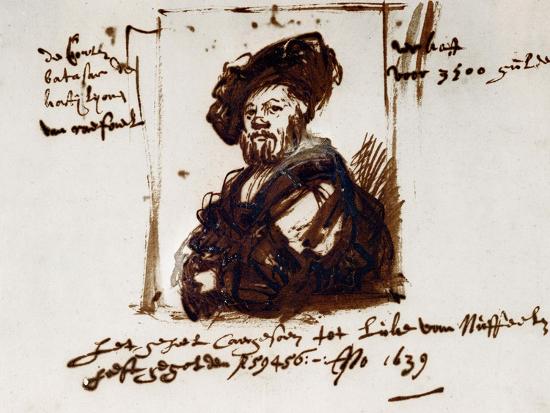 de Conte
batasar de
kastijlijone
van raefael
verkoft
voor 3500 gulde
het geheel caergesoen tot Luke van Nuffeele
heeft gegolden f 59456:-: Ano 1639